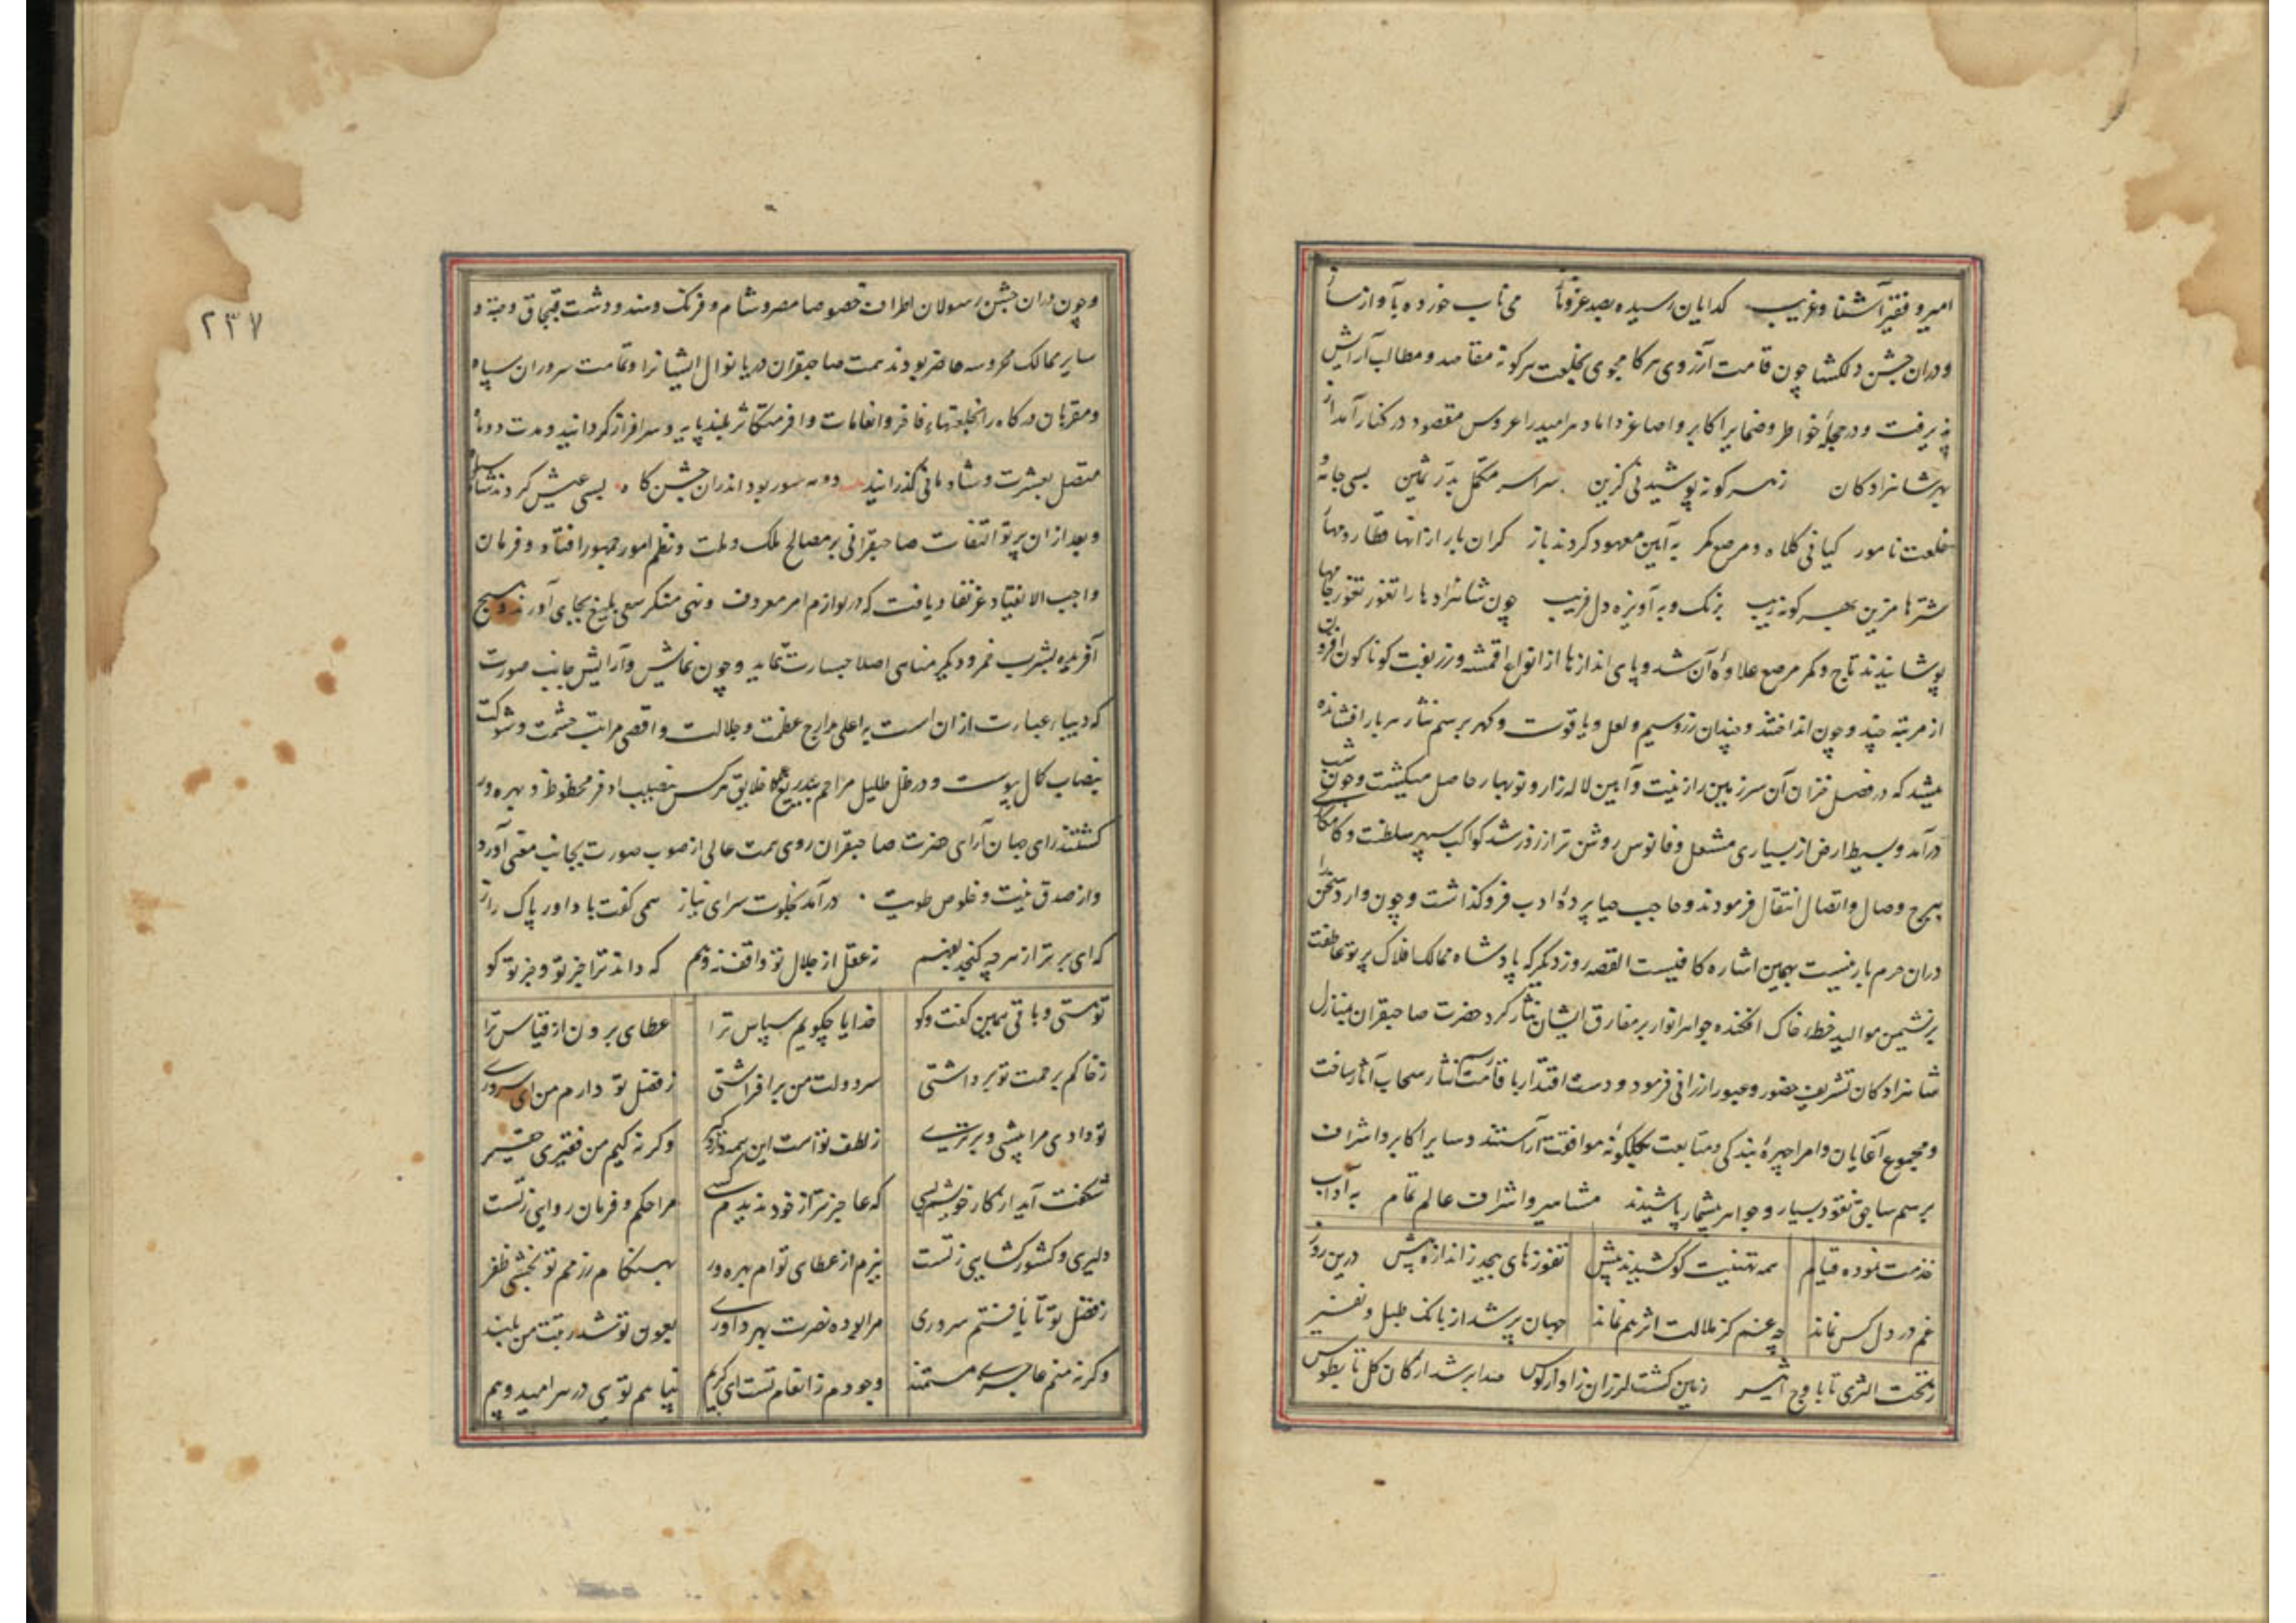 امیر و فقیر آشنا و غریب گدایان رسیده بصد عز و ناز می ناب خورده بآواز ساز
و دران جشن دلکشا چون قامت آرزوی هر کامجوی بخلعت هر کونه مقاصد و مطالب آرایش
پذیرفت و در حجلهٔ خواطر و ضمایر اکابر و اصاغر داماد هر امید را عروس مقصود در کنار آمد از
بهر شاهزادکان زهر کونه پوشیدنی کزین سراسر مکلل بدر ثمین بسی جامه و
خلعت نامور کیانی کلاه و مرصع کمر به آیین معهود کردند باز کران بار ازانها قطار و مهار
شترها مزین بهر کونه زیب بزنک و به آویزه دل فریب چون شاهزادها را تغوز تغوز جامها
پوشانیدند تاج و کمر مرصع علاوهٔ آن شد و پای اندازها از انواع اقمشه و زربفت کوناکون افزون
از مرتبه چند و چون انداختند و چندان زر و سیم و لعل و یاقوت و کهر برسم نثار هر بار افشانده
میشد که در فصل خزان آن سرزمین را زینت و آیین لاله زار و نوبهار حاصل میکشت و چون شب
درآمد و بسیط ارض از بسیاری مشعل و فانوس روشن تر از روز شد کواکب سپهر سلطنت و کامکاری
ببرج وصال و اتصال انتقال فرمودند و حاجب حیا پردهٔ ادب فروکذاشت و چون وارد سخن را
دران حرم بار نیست بهمین اشاره کافیست القصه روز دیکر که پادشاه ممالک افلاک پرتو عاطفت
بر نشیمن موالید خطهٔ خاک افکنده جواهر انوار بر مفارق ایشان نثار کرد حضرت صاحبقران بمنازل
شاهزادکان تشریف حضور و عبور ارزانی فرمود و دست اقتدار باقامت رسم نثار سحاب آثار ساخت
و مجموع آغایان و امرا چهرهٔ بندکی و متابعت بکلکونهٔ موافقت آراستند و سایر اکابر و اشراف
برسم سابق نقود بسیار و جواهر بیشمار پاشیدند مشاهیر و اشراف عالم تمام به آداب
خدمت نموده قیام همه تهنیت کو کشیدند پیش تغوزهای بیحد ز اندازه بیش درین روز
غم در دل کس نماند چه غم کز ملالت اثر هم نماند جهان پر شد از بانک طبل و نفیر
ز تحت الثری تا باوج اثیر زمین کشت لرزان ز آواز کوس صدا بر شد ارکان کل تا بطوس
۲۳۷
و چون دران جشن رسولان اطراف خصوصا مصر و شام و فرنک و هند و دشت قبچاق و جته و
سایر ممالک محروسه حاضر بودند همت صاحبقران دریا نوال ایشانرا و تمامت سروران سپاه
و مقربان درکاه را بخلعتهاء فاخر و انعامات وافر متکاثر بلند پایه و سرافراز کردانید و مدت دو ماه
متصل بعشرت و شادمانی کذرانید دو مه سور بود اندران جشن کاه بسی عیش کردند شاه و سپاه
و بعد ازان پرتو التفات صاحبقرانی بر مصالح ملک و ملت و نظم امور جمهور افتاد و فرمان
واجب الانقیاد عز نفاد یافت که در لوازم امر معروف و نهی منکر سعی بلیغ بجای آورند و هیچ
آفریده بشرب خمر و دیکر مناهی اصلا جسارت ننماید و چون نمایش و آرایش جانب صورت
که دنیا عبارت ازان است به اعلی مدارج عظمت و جلالت و اقصی مراتب حشمت و شوکت
بنصاب کمال پیوست و در ظل ظلیل مراحم بیدریغ کافهٔ خلایق هر کس بنصیب اوفر محظوظ و بهره ور
کشتند رای جهان آرای حضرت صاحبقران روی همت عالی از صوب صورت بجانب معنی آورد
و از صدق نیت و خلوص طویت درآمد بخلوت سرای نیاز همی کفت با داور پاک راز
که ای برتر از هر چه کنجد بفهم نه عقل از جلال تو واقف نه وهم که داند ترا جز تو و جز تو کو
تو هستی و باقی همین کفت و کو خدایا چکویم سپاس ترا عطای برون از قیاس ترا
ز خاکم برحمت تو برداشتی سر دولت من برافراشتی ز فضل تو دارم من این سروری
تو دادی مرا پیشی و برتری ز لطف تو است این همه دار و کیر وکرنه کیم من فقیری حقیر
شکفت آید از کار خویشم بسی که عاجزتر از خود ندیدم کسی مرا حکم و فرمان روایی ز تست
دلیری و کشور کشایی ز تست ببزم از عطای توام بهره ور بهنکام رزمم تو بخشی ظفر
ز فضل تو تا یافتم سروری مرا بوده نصرت بهر داوری بعون تو شد رتبت من بلند
وکرنه منم عاجزی مستمند وجودم ز انعام تست ای کریم پناهم تویی در سر امید و بیم